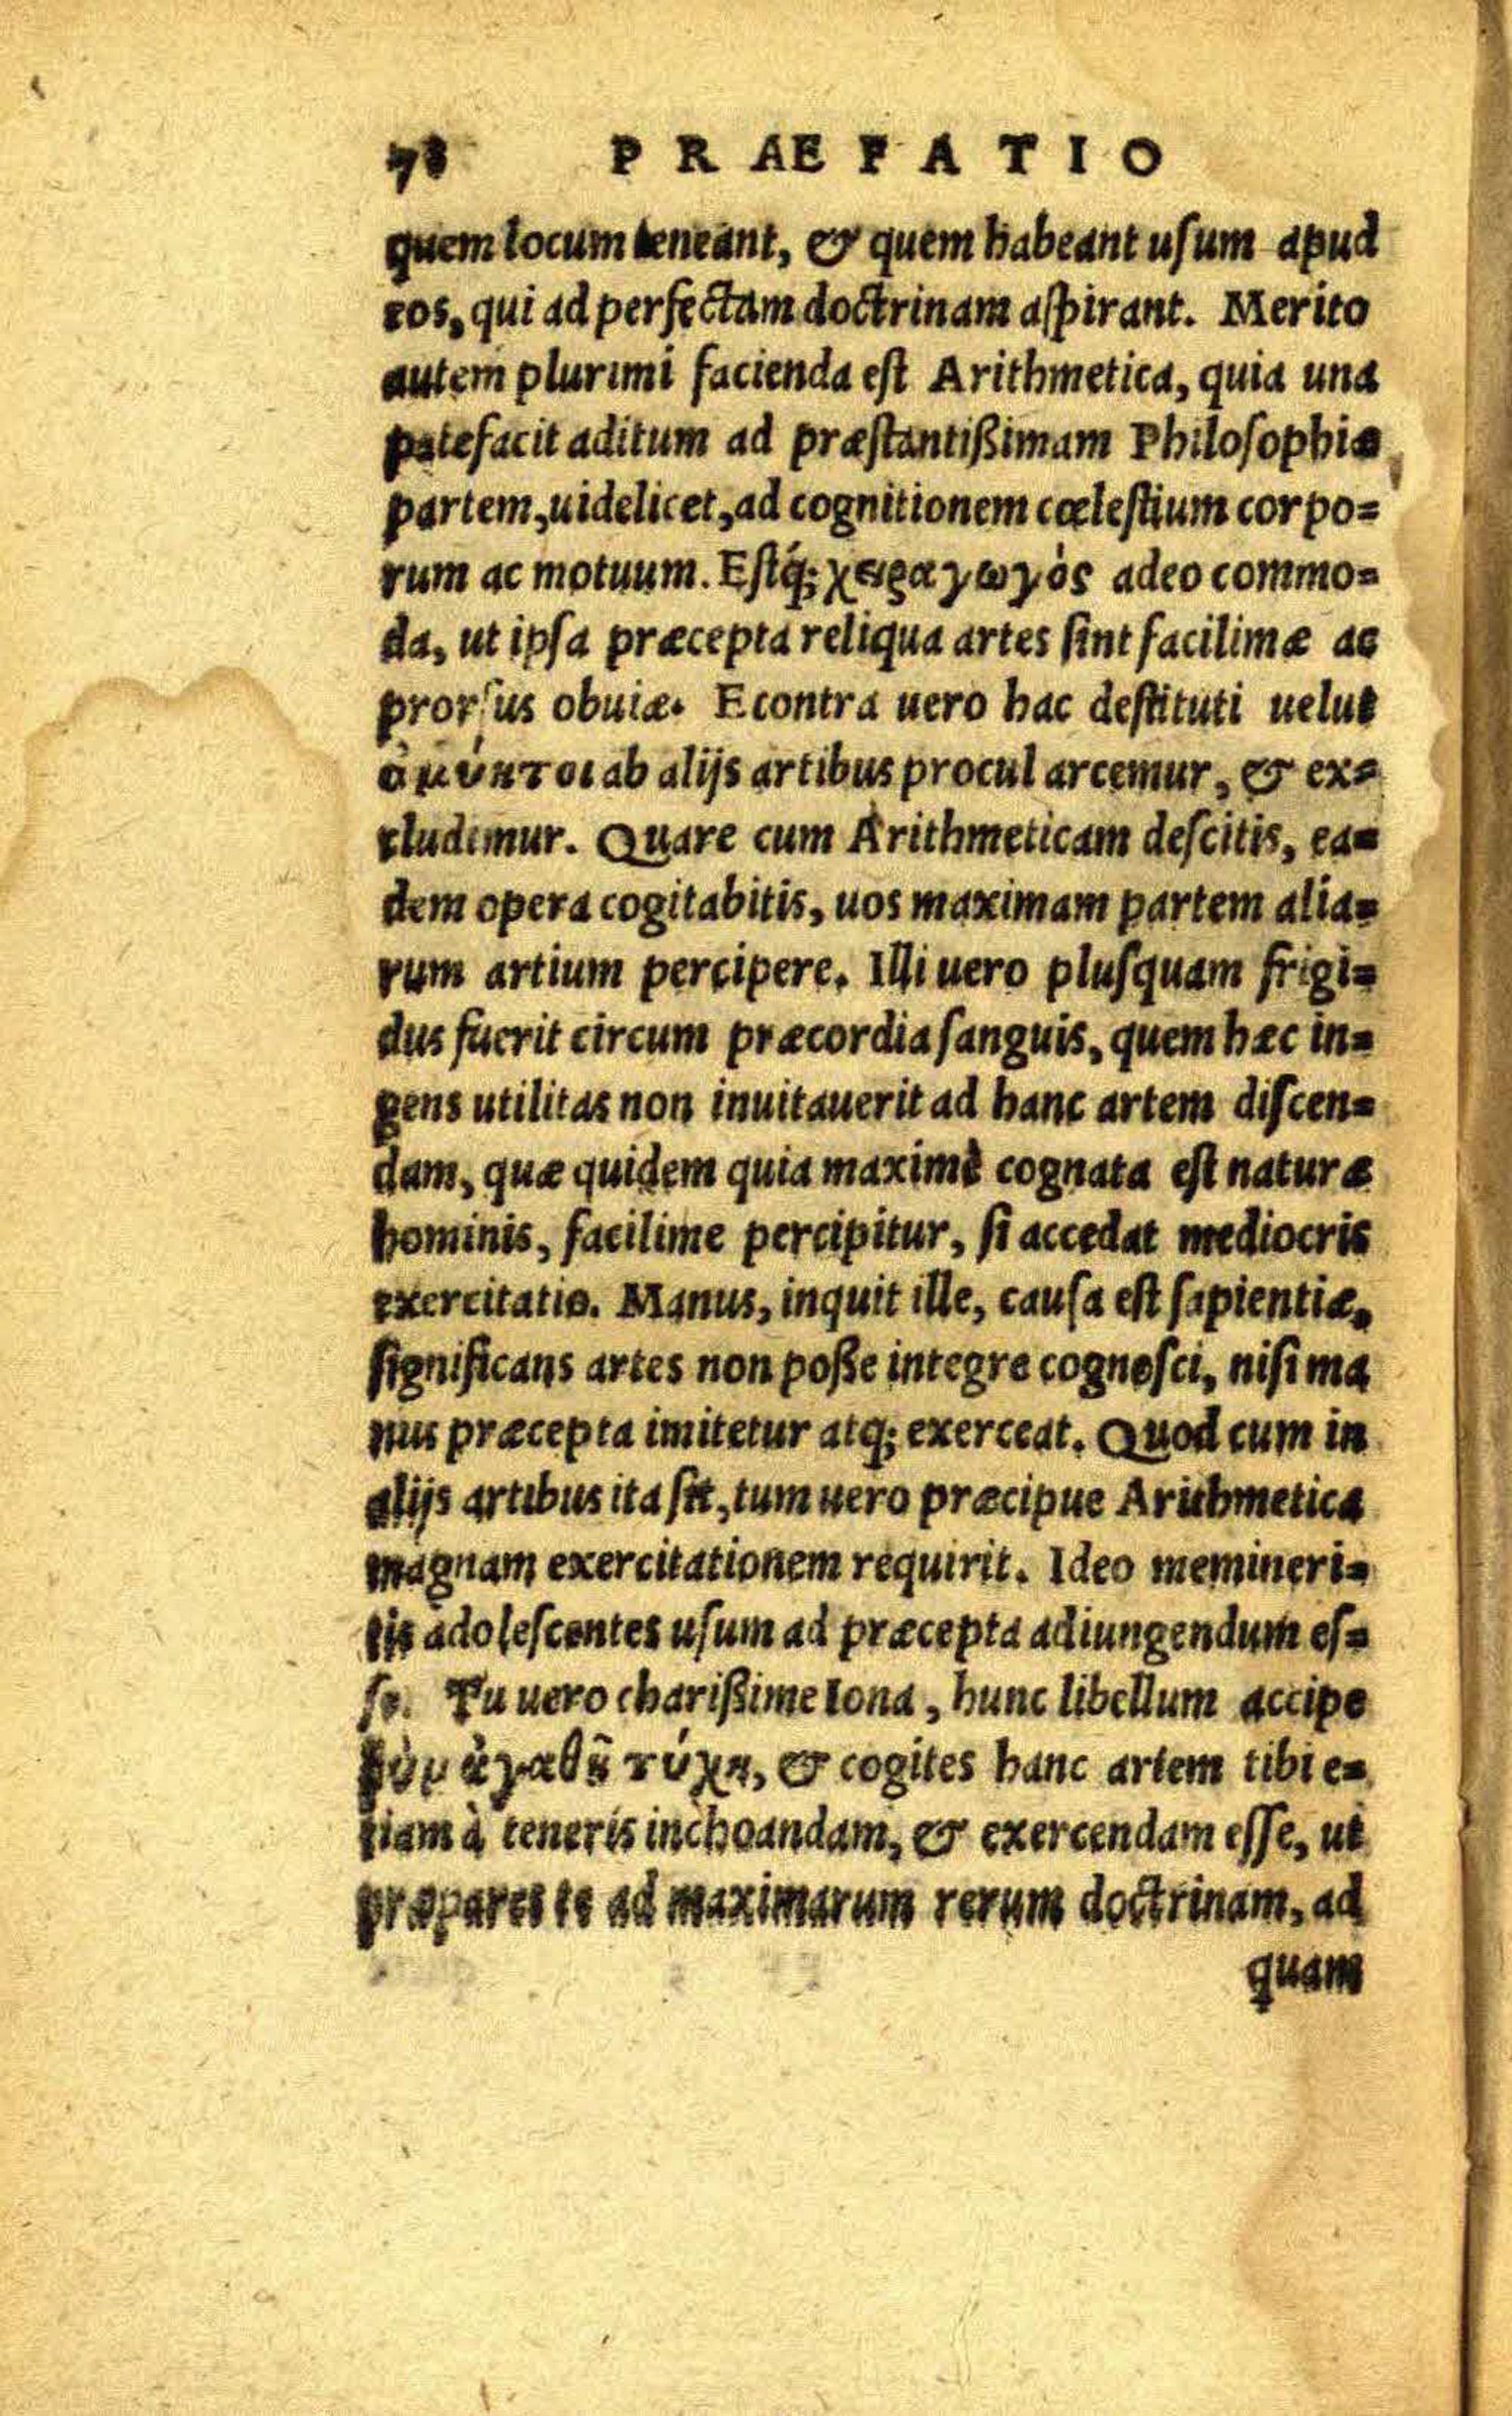 78 PRAEFATIO
quem locum teneant, & quem habeant uſum apud
eos, qui ad perfectam doctrinam aſpirant. Merito
autem plurimi facienda eſt Arithmetica, quia una
patefacit aditum ad præſtantißimam Philoſophiæ
partem, uidelicet, ad cognitionem cœleſtium corpo=
rum ac motuum. Eſtq́; χειραγωγὸς adeo commo=
da, ut ipſa præcepta reliqua artes ſint facilimæ ac
prorſus obuiæ. Econtra uero hac deſtituti uelut
ἀμύητοι ab alijs artibus procul arcemur, & ex=
cludimur. Quare cum Arithmeticam deſcitis, ea=
dem opera cogitabitis, uos maximam partem alia=
rum artium percipere. Illi uero pluſquam frigi=
dus fuerit circum præcordia ſanguis, quem hæc in=
gens utilitas non inuitauerit ad hanc artem diſcen=
dam, quæ quidem quia maximè cognata eſt naturæ
hominis, facilime percipitur, ſi accedat mediocris
exercitatio. Manus, inquit ille, cauſa eſt ſapientiæ,
ſignificans artes non poße integre cognoſci, niſi ma
nus præcepta imitetur atq; exerceat. Quod cum in
alijs artibus ita ſit, tum uero præcipue Arithmetica
magnam exercitationem requirit. Ideo memineri=
tis adoleſcentes uſum ad præcepta adiungendum eſ=
ſe. Tu uero charißime Iona, hunc libellum accipe
σὺμ ἀγαθῇ τύχῃ, & cogites hanc artem tibi e=
tiam à teneris inchoandam, & exercendam eſſe, ut
præpares te ad maximarum rerum doctrinam, ad
quam